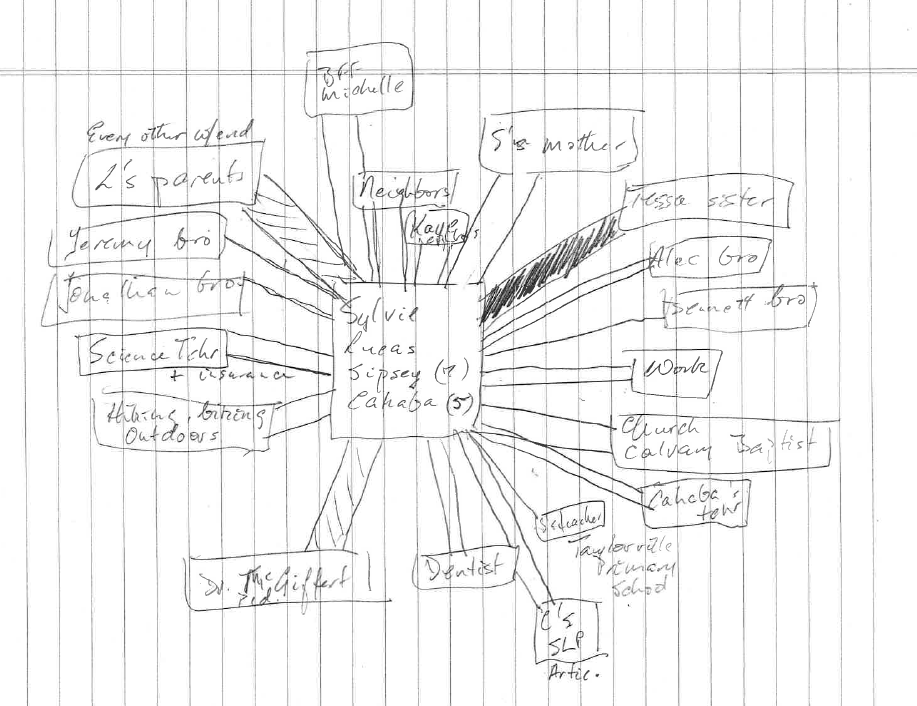 BFF
Michelle
Every other w/end
L's parents
S's mother
Neighbors
Kaye
Tessa sister
Jeremy bro
Alec bro
Jonathan bro
Bennett bro
Sylvie
Lucas
Sipsey (7)
Cahaba (5)
Science Tchr
+ insurance
Work
Hiking, biking
Outdoors
Church
Calvary Baptist
Cahaba's
tchr
S's teacher
Taylorville
Primary
School
Dr. McGiffert
Ped.
Dentist
C's
SLP
Artic.